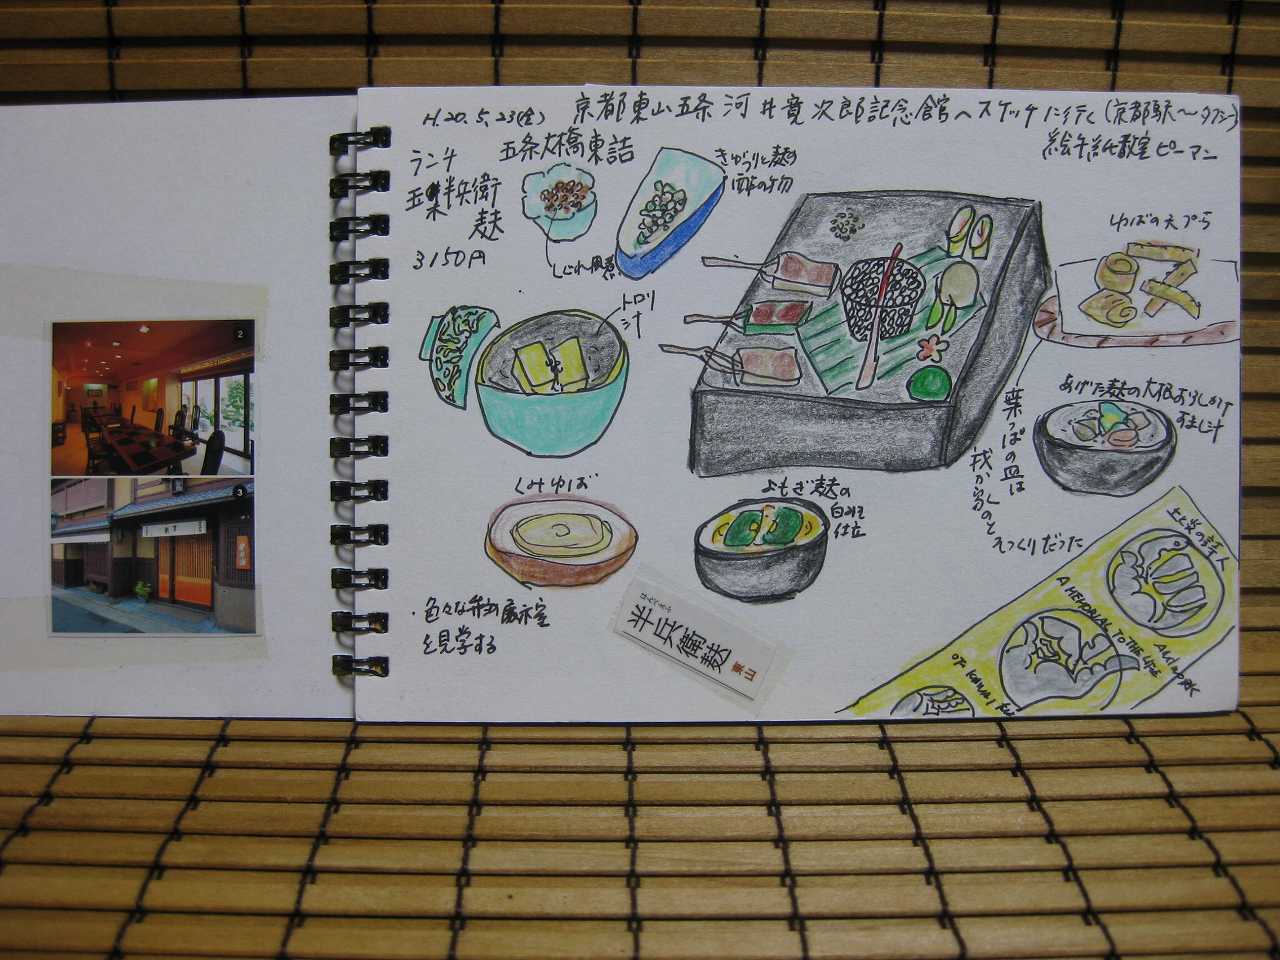 H.20.5.23(金) 京都東山五条 河井寛次郎記念館へスケッチに行く(京都駅〜タクシー)
絵手紙教室ピーマン
ランチ
五条大橋東詰
半兵衛
麩
3150円
しぐれ風煮
きゅうりと麩の
酢の物
トロリ
汁
ゆばの天プラ
あげた麩の大根おろしかけ
すまし汁
葉っぱの皿は
我が家のと
そっくりだった
くみゆば
よもぎ麩の
白みそ
仕立
・色々な弁当展示室
を見学する
はんべえふ
半兵衛麸
東山
2
3
A MEMORIAL TO THE LIFE
AND WORK
OF KAWAI